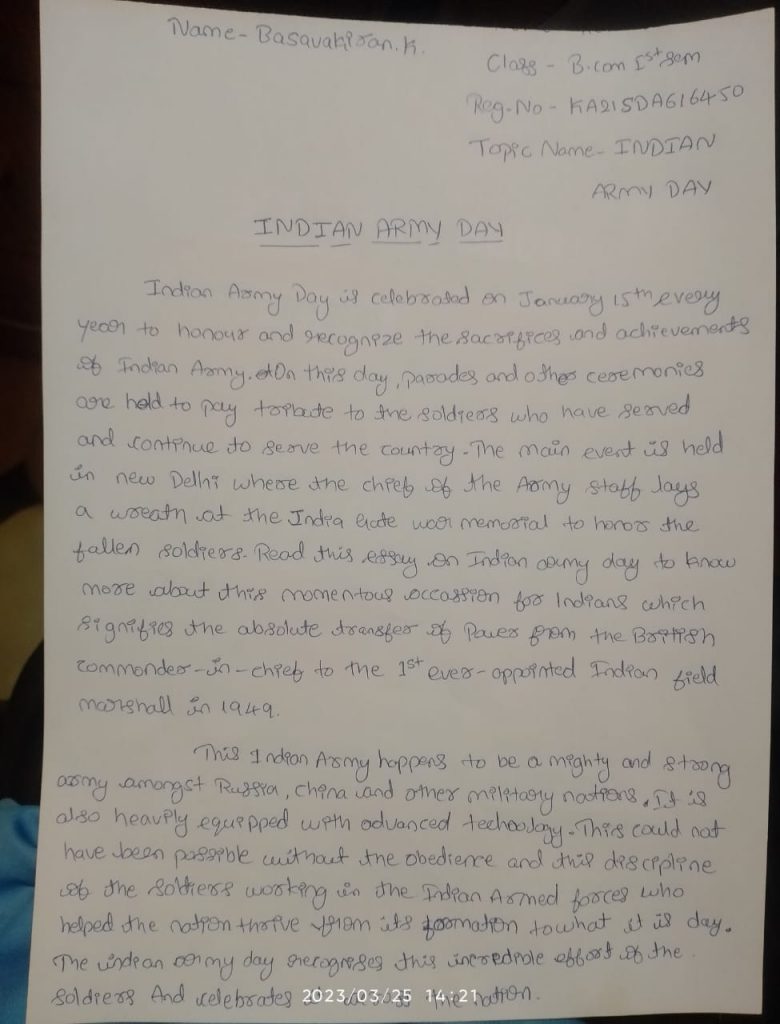 Name - Basavakiran.K.
Class - B.com Ist sem
Reg.No - KA21SDA616450
Topic Name - INDIAN
ARMY DAY
INDIAN ARMY DAY
Indian Army Day is celebrated on January 15th every
year to honour and recognize the sacrifices and achievements
of Indian Army. On this day, parades and other ceremonies
are held to pay tribute to the soldiers who have served
and continue to serve the country. The main event is held
in new Delhi where the chief of the Army staff lays
a wreath at the India Gate war memorial to honor the
fallen soldiers. Read this essay on Indian army day to know
more about this momentous occassion for Indians which
signifies the absolute transfer of Power from the British
commander-in-chief to the 1st ever-appointed Indian field
marshall in 1949.
This Indian Army happens to be a mighty and strong
army amongst Russia, China and other military nations. It is
also heavily equipped with advanced technology. This could not
have been possible without the obedience and this discipline
of the soltiers working in the Indian Armed forces who
helped the nation thrive from its formation to what it is day.
The indian army day recognises this incredible effort of the
soldiers And celebrates 2023/03/25 14:21 the nation.